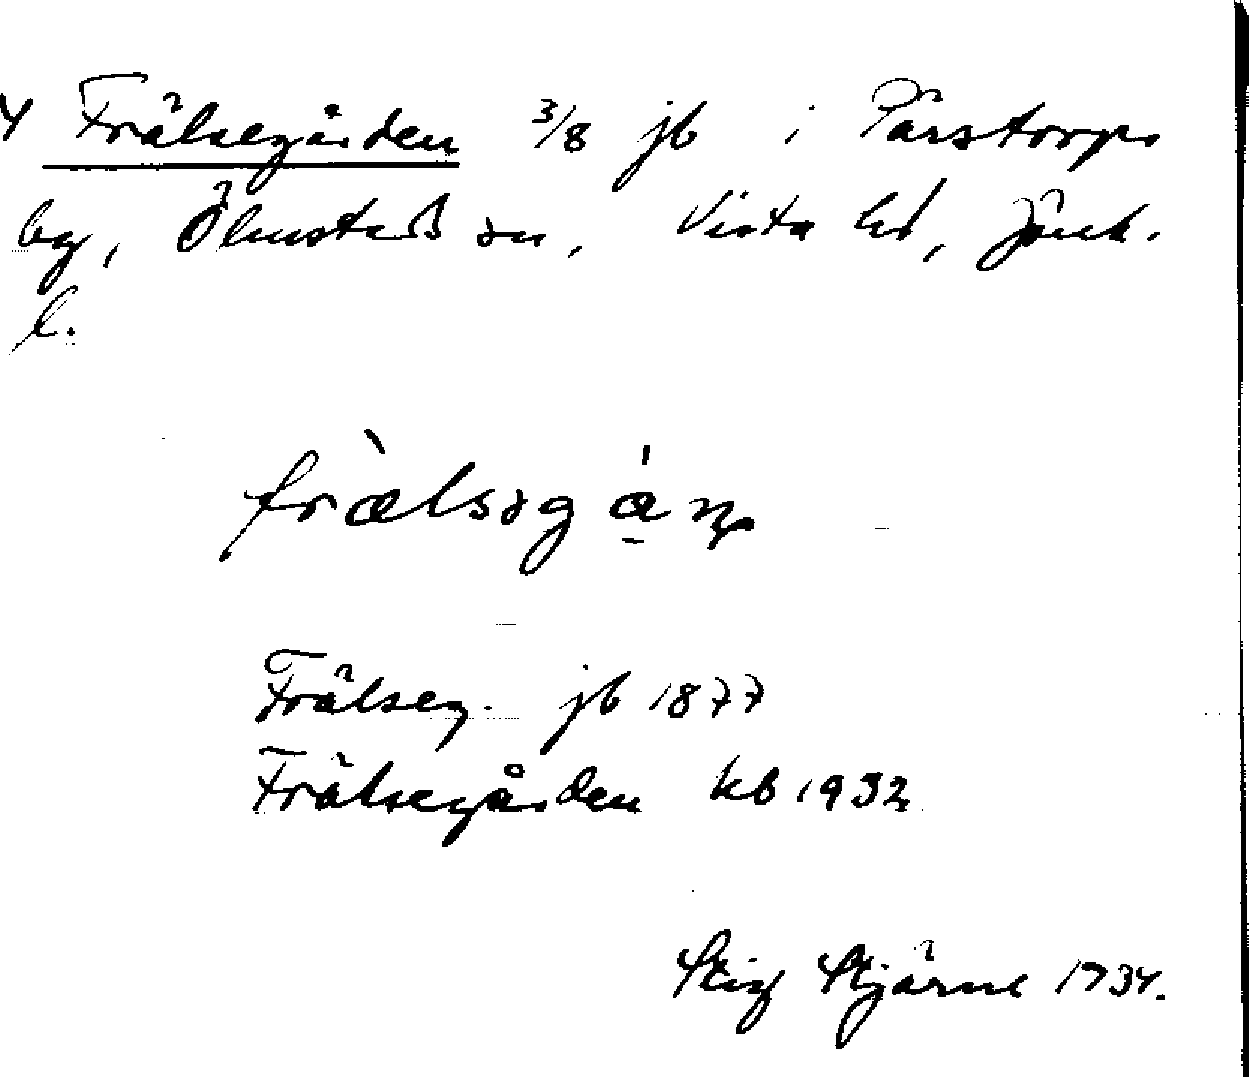 4 Frälsegården 3/8 jb i Pärstorps
by, Ölmstads sn, Vista hd, Jönk.
l.
fràlsəgá̱ṇ
Frälseg. jb 1877
Frälsegården kb 1932
Stig Stjärne 1934.